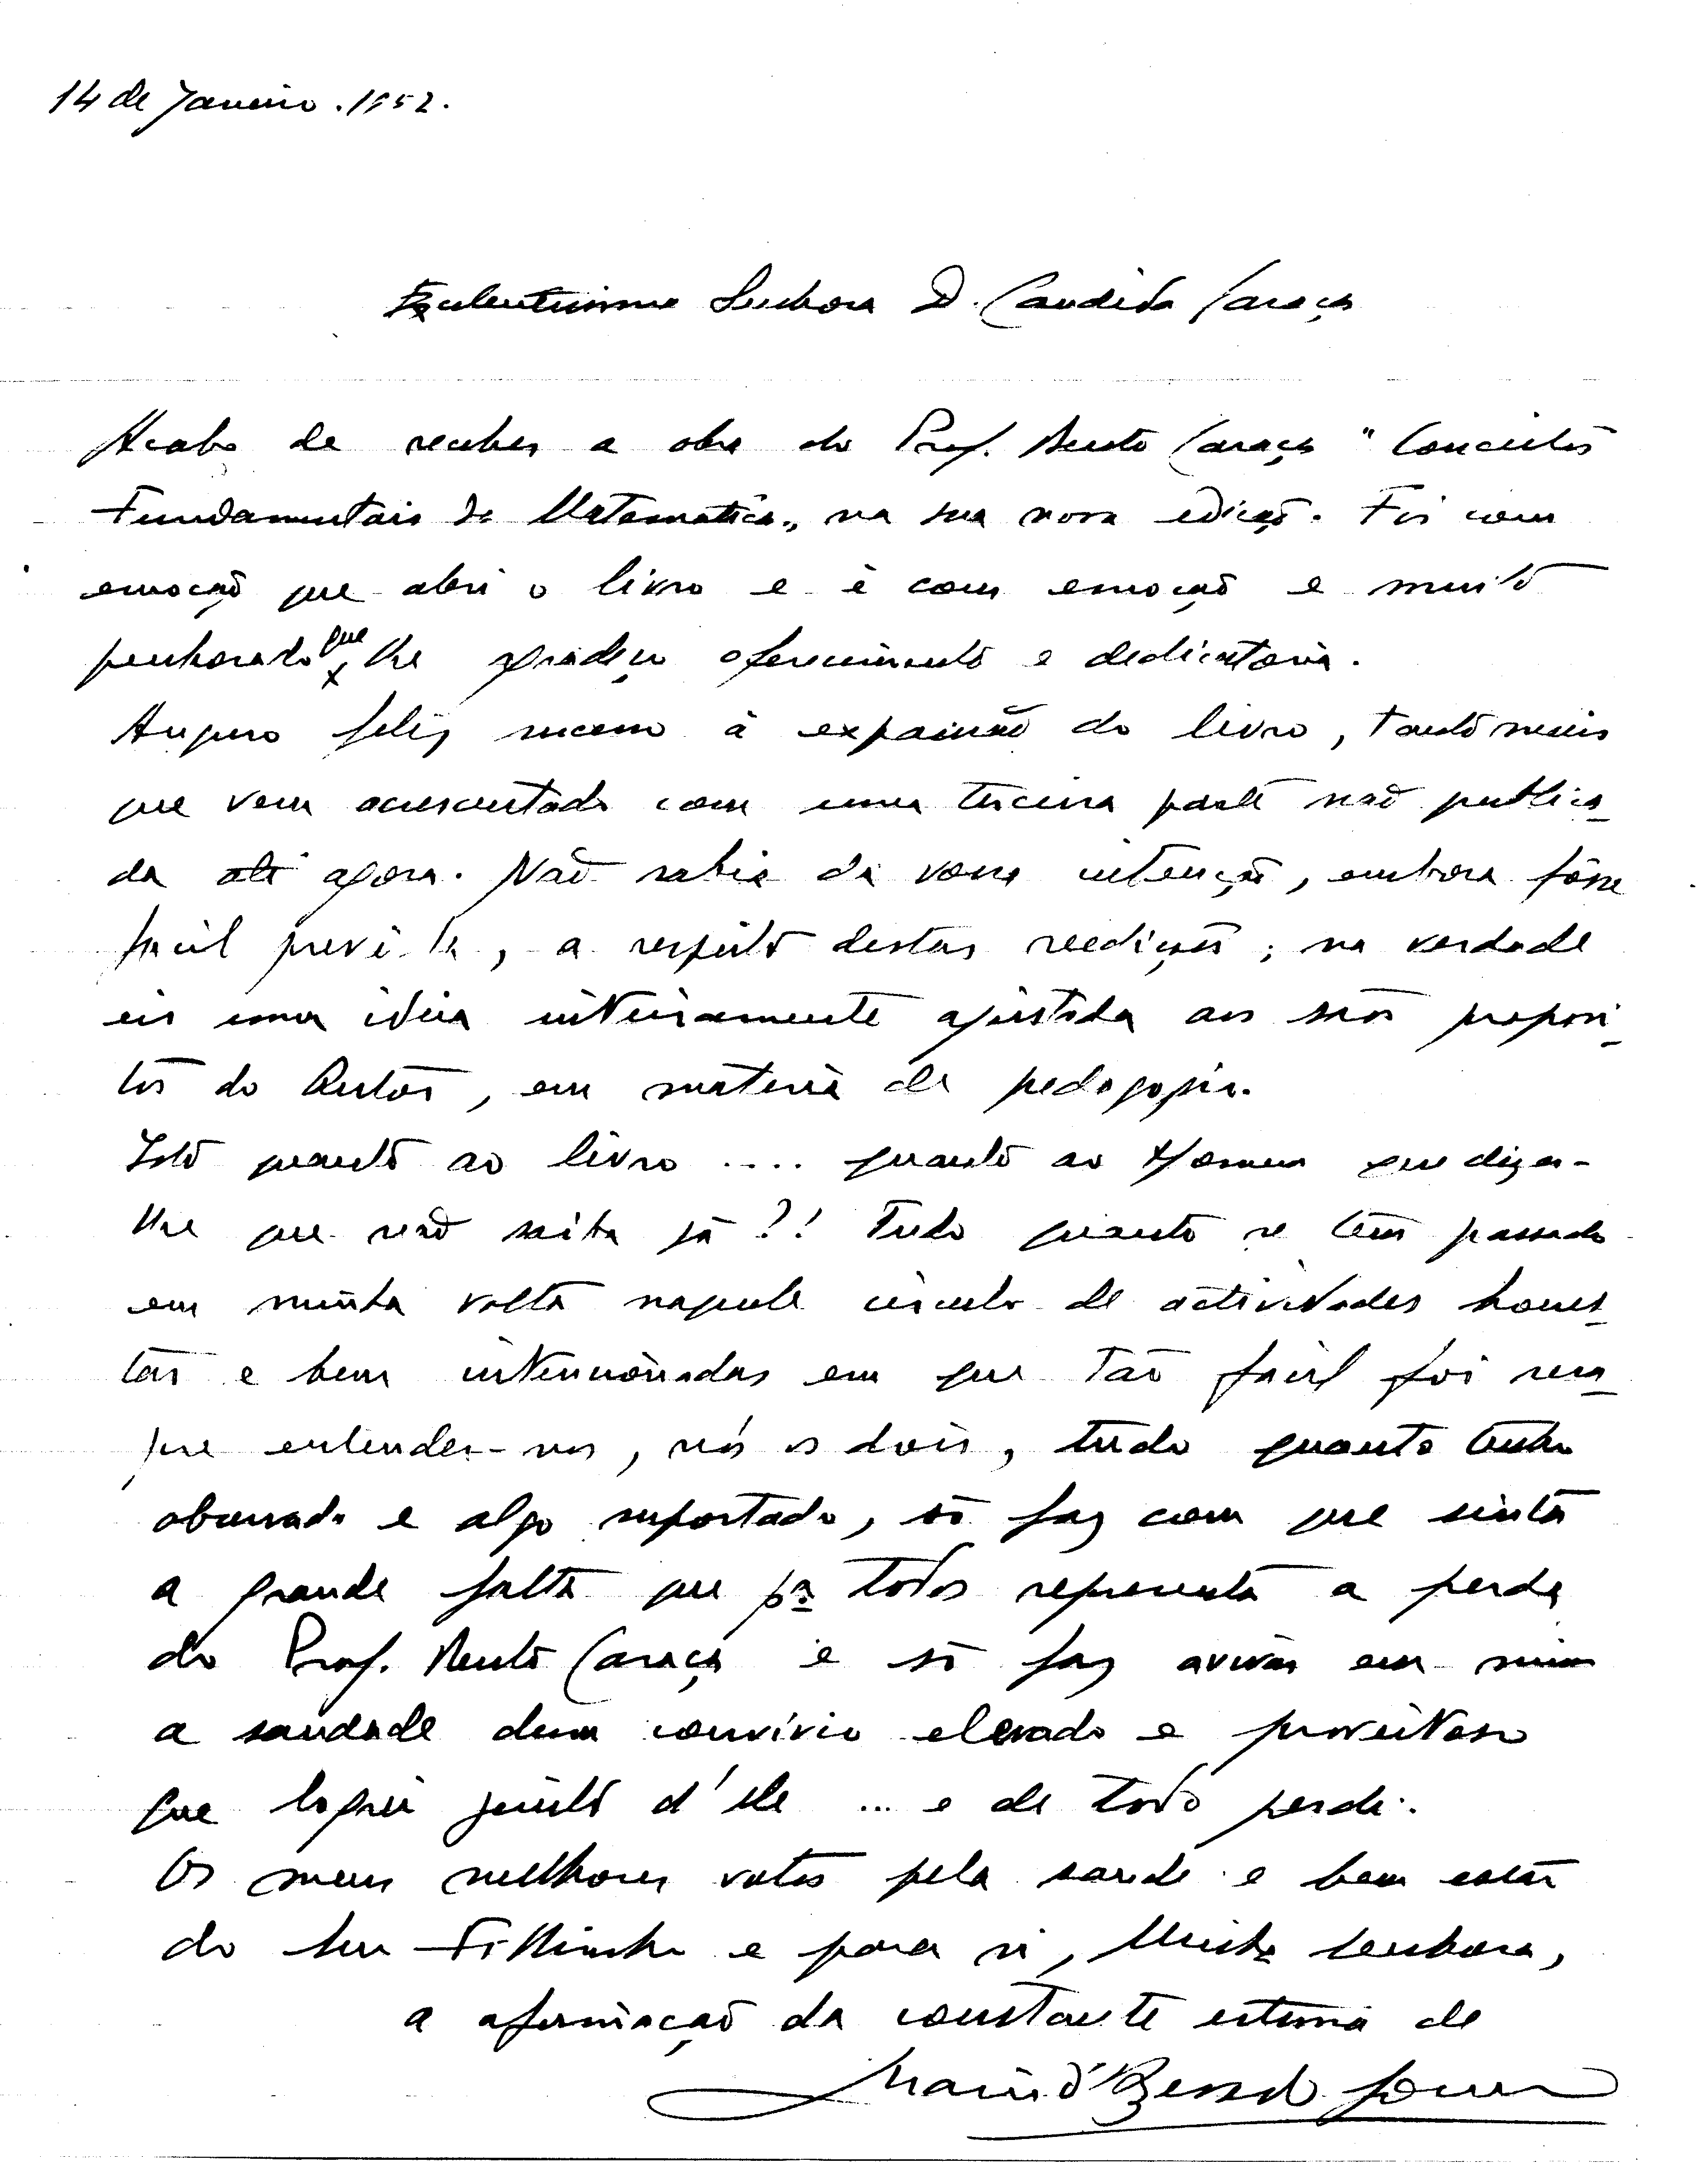 14 de Janeiro . 1952.
Excelentissima Senhora D. Candida Caraça
Acabo de receber a obra do Prof. Bento Caraça "Conceitos
Fundamentais da Matematica", na sua nova edição. Foi com
emoção que abri o livro e é com emoção e muito
penhorado que lhe agradeço oferecimento e dedicatoria.
Auguro feliz sucesso à expansão do livro, tanto mais
que vem acrescentado com uma terceira parte não publica
da até agora. Não sabia da vossa intenção, embora fôsse
facil prevê-la, a respeito destas reedições; na verdade
eis uma ideia inteiramente ajustada aos sãos proposi
tos do Autor, em materia de pedagogia.
Isto quanto ao livro .... quanto ao Homem que dizer-
lhe que não saiba já ?! Tudo quanto se tem passado
em minha volta naquele circulo de actividades hones
tas e bem intencionadas em que tão facil foi sem
pre entender-nos, nós os dois, tudo quanto tenho
observado e algo suportado, só faz com que sinta
a grande falta que pª todos representa a perda
do Prof. Bento Caraça e só faz avivar em mim
a saudade dum convívio elevado e proveitoso
que logrei junto d'ele ... e de todo perdi.
Os meus melhores votos pela saude e bem estar
do seu Filhinho e para si, Minha Senhora,
a afirmação da constante estima de